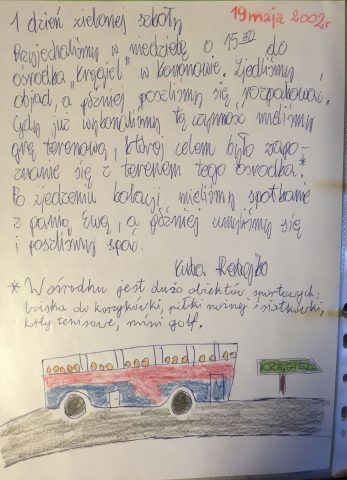 1 dzień zielonej szkoły
19 maja 2002r
Przyjechaliśmy w niedzielę o 15:00 do
ośrodka „Kręgiel" w
Zjedliśmy
obiad, a później poszliśmy się rozpakować.
Gdy już wykonaliśmy tę czynność mieliśmy
grę terenową, której celem było zapo-
znanie się z terenem tego ośrodka.*
Po zjedzeniu kolacji mieliśmy spotkanie
z panią Ewą, a później umyliśmy się
i poszliśmy spać.
Kuba
* W ośrodku jest dużo obiektów sportowych:
boiska do koszykówki, piłki nożnej i siatkówki,
korty tenisowe, mini golf.
KRĘGIEL